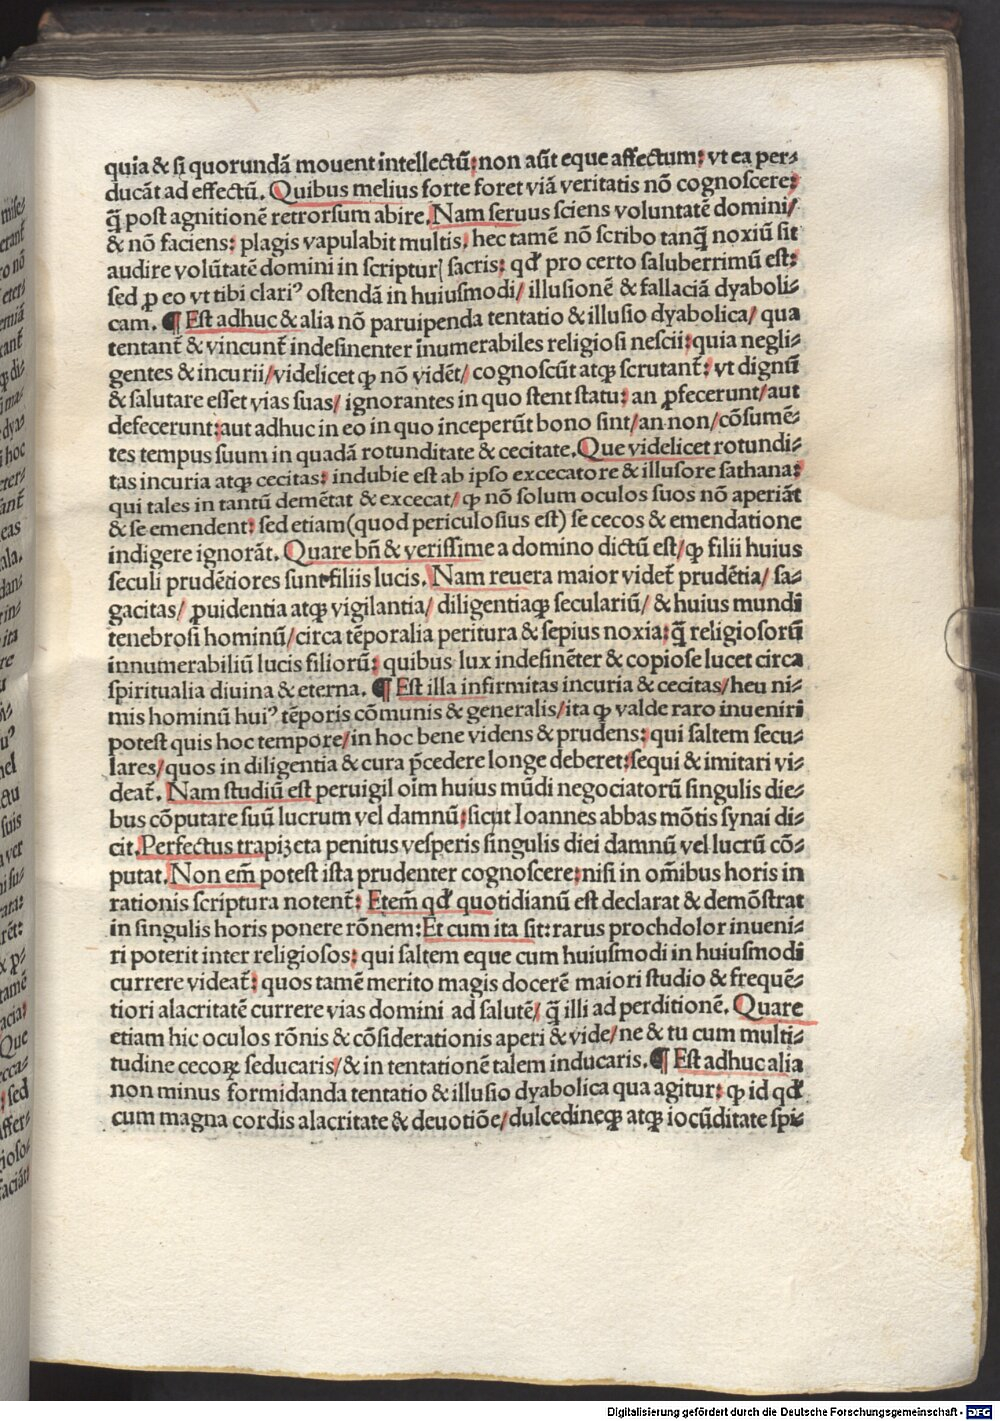 quia & si quorundā mouent intellectū: non aūt eque affectum: vt ea per⸗
ducāt ad effectū. Quibus melius forte foret viā veritatis nō cognoscere:
q̄ post agnitionē retrorsum abire. Nam seruus sciens voluntatē domini/
& nō faciens: plagis vapulabit multis. hec tamē nō scribo tanq̄ noxiū sit
audire volūtatē domini in scripturꝭ sacris: qđ pro certo saluberrimū est:
sed ꝓ eo vt tibi clariꝰ ostendā in huiusmodi/ illusionē & fallaciā dyaboli⸗
cam. ¶ Est adhuc & alia nō paruipenda tentatio & illusio dyabolica/ qua
tentant̄ & vincunt̄ indesinenter innumerabiles religiosi nescii: quia negli⸗
gentes & incurii/ videlicet ꝙ nō vidēt/ cognoscūt atqꝫ scrutant̄: vt dignū
& salutare esset vias suas/ ignorantes in quo stent statu: an ꝓfecerunt/ aut
defecerunt: aut adhuc in eo in quo inceperūt bono sint/ an non/ cōsumē⸗
tes tempus suum in quadā rotunditate & cecitate. Que videlicet rotundi⸗
tas incuria atqꝫ cecitas: indubie est ab ipso excecatore & illusore sathana:
qui tales in tantū demētat & excecat/ ꝙ nō solum oculos suos nō aperiāt
& se emendent: sed etiam (quod periculosius est) se cecos & emendatione
indigere ignorāt. Quare bn̄ & verissime a domino dictū est/ ꝙ filii huius
seculi prudētiores sunt filiis lucis. Nam reuera maior videt̄ prudētia/ sa⸗
gacitas/ ꝓuidentia atqꝫ vigilantia/ diligentiaqꝫ seculariū/ & huius mundi
tenebrosi hominū/ circa tēporalia peritura & sepius noxia: q̄ religiosorū
innumerabiliū lucis filiorū: quibus lux indesinēter & copiose lucet circa
spiritualia diuina & eterna. ¶ Est illa infirmitas incuria & cecitas/ heu ni⸗
mis hominū huiꝰ tēporis cōmunis & generalis/ ita ꝙ valde raro inueniri
potest quis hoc tempore/ in hoc bene videns & prudens: qui saltem secu⸗
lares/ quos in diligentia & cura p̄cedere longe deberet: sequi & imitari vi⸗
deat̄. Nam studiū est peruigil oīm huius mūdi negociatorū singulis die⸗
bus cōputare suū lucrum vel damnū: sicut Ioannes abbas mōtis synai di⸗
cit. Perfectus trapizeta penitus vesperis singulis diei damnū vel lucrū cō⸗
putat. Non em̄ potest ista prudenter cognoscere: nisi in om̄ibus horis in
rationis scriptura notent̄: Etem̄ qđ quotidianū est declarat & demōstrat
in singulis horis ponere rōnem: Et cum ita sit: rarus prochdolor inueni⸗
ri poterit inter religiosos: qui saltem eque cum huiusmodi in huiusmodi
currere videat̄: quos tamē merito magis docerē maiori studio & frequē⸗
tiori alacritatē currere vias domini ad salutē/ q̄ illi ad perditionē. Quare
etiam hic oculos rōnis & cōsiderationis aperi & vide/ ne & tu cum multi⸗
tudine cecoꝝ seducaris/ & in tentationē talem inducaris. ¶ Est adhuc alia
non minus formidanda tentatio & illusio dyabolica qua agitur: ꝙ id qđ
cum magna cordis alacritate & deuotiōe/ dulcedineqꝫ atqꝫ iocūditate spi⸗
Digitalisierung gefördert durch die Deutsche Forschungsgemeinschaft - DFG